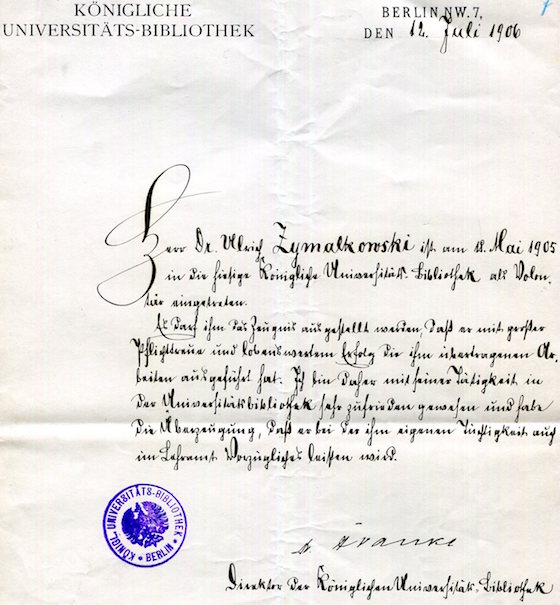 KÖNIGLICHE
UNIVERSITÄTS-BIBLIOTHEK
BERLIN NW. 7,
DEN 12. Juli 1906
Herr Dr. Ulrich Zymalkowski ist am 12. Mai 1905
in die hiesige Königliche Universitäts-Bibliothek als Volon-
tär eingetreten.
Es darf ihm das Zeugnis ausgestellt werden, daß er mit großer
Pflichttreue und lobenswertem Erfolg die ihm übertragenen Ar-
beiten ausgeführt hat. Ich bin daher mit seiner Tätigkeit in
der Universitätsbibliothek sehr zufrieden gewesen und habe
die Überzeugung, daß er bei der ihm eigenen Tüchtigkeit auch
im Lehramt Vorzügliches leisten wird.
KÖNIGL. UNIVERSITÄTS-BIBLIOTHEK
BERLIN
Franke
Direktor der Königlichen Universitäts-Bibliothek